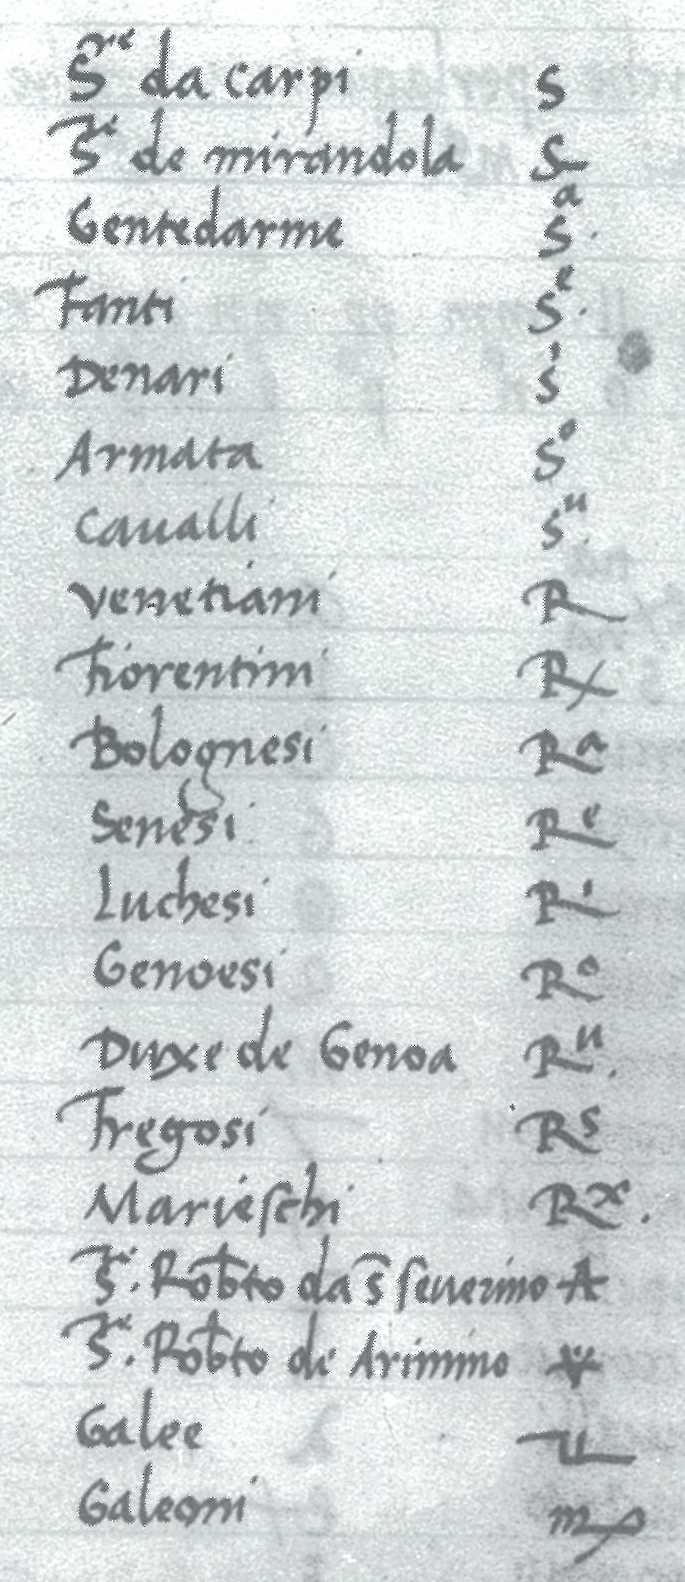 S^re da carpi S
S^re de mirandola S
Gentedarme S^a.
Fanti S^e.
Denari S^i
Armata S^o
Caualli S^u.
Venetiani R
Fiorentini Rx
Bolognesi R^a
Senesi R^e
Luchesi R^i
Genoesi R^o
Duxe de Genoa R^u.
Fregosi R^s
Marieschi R^x.
S^re. Rob̃to da s̃ seuerino A
S^re. Rob̃to de Arimino
Galee
Galeoni